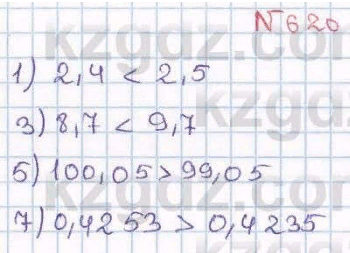 №620
1) 2,4 < 2,5
3) 8,7 < 9,7
5) 100,05 > 99,05
7) 0,4253 > 0,4235
kzgdz.com